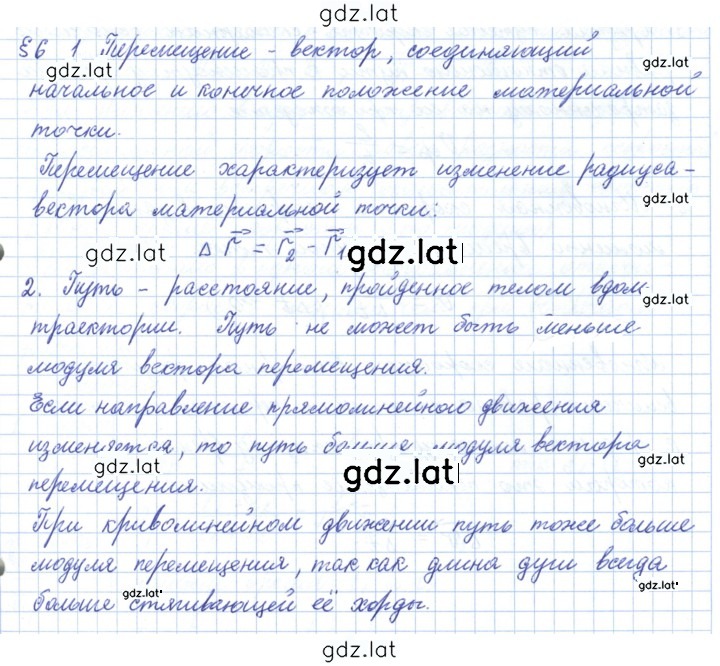 gdz.lat
§6 1 Перемещение - вектор, соединяющий
gdz.lat gdz.lat
начальное и конечное положение материальной
точки.
Перемещение характеризует изменение радиуса-
gdz.lat
вектора материальной точки:
gdz.lat Δ r⃗ = r⃗₂ - r⃗₁ gdz.lat
2. Путь - расстояние, пройденное телом вдоль
gdz.lat
траектории. Путь не может быть меньше
модуля вектора перемещения.
Если направление прямолинейного движения
изменяется, то путь больше модуля вектора
gdz.lat gdz.lat gdz.lat
перемещения.
При криволинейном движении путь тоже больше
модуля перемещения, так как длина дуги всегда
gdz.lat gdz.lat
больше стягивающей её хорды.
gdz.lat